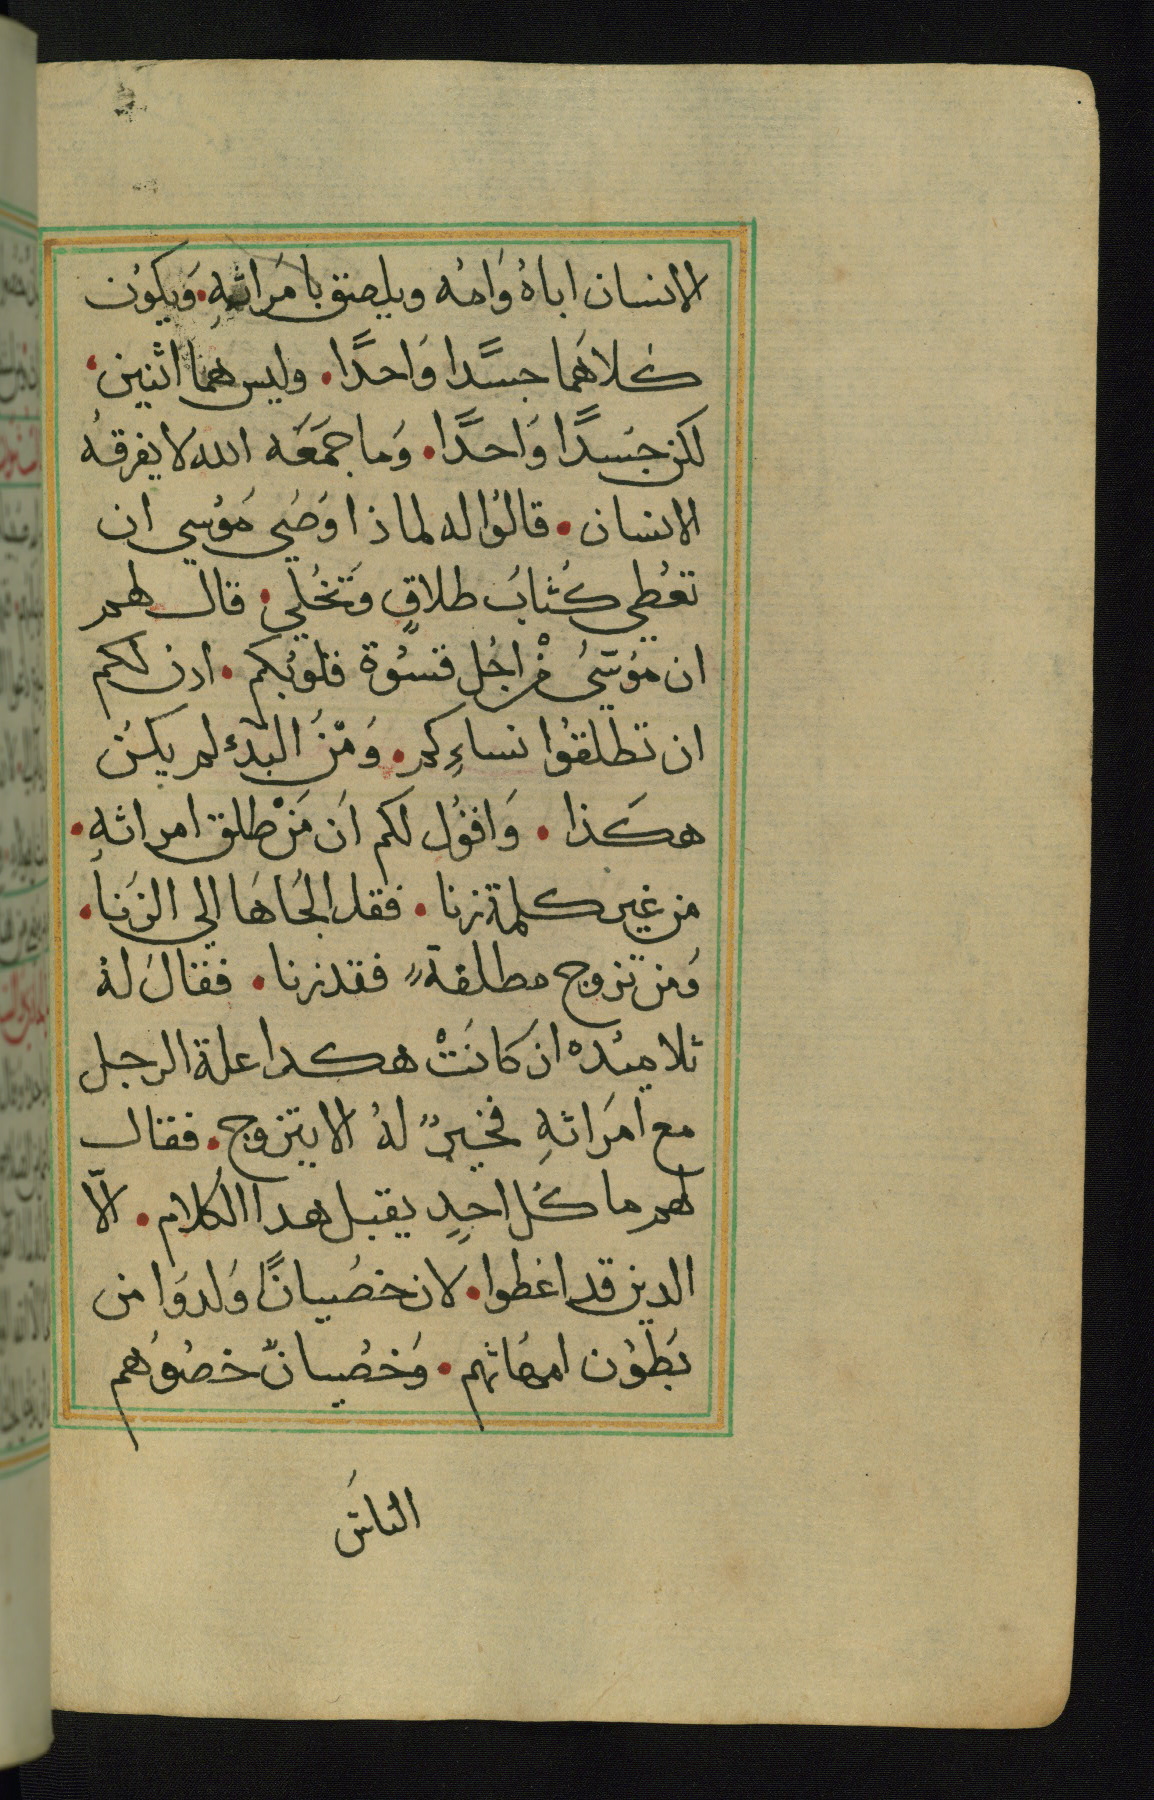 الانسان اباهُ وَامُه ويلصق بامَراتهِ. وَيكوُن
كلاهَما جسَدًا وَاحدًا. وليس هما اثنين،
لكن جسَدًا وَاحدًا. وَما جمَعَه الله لا يفرقهُ
الانسان. قالوُا له لماذا اوَصَي مَوُسي ان
تعُطي كُتابُ طلاقٍ وَتخُلي. قال لهم
ان موُسَيُ مْن اجُل قسوُة قلوبُكم. اذن لكم
ان تطلقوُا نساءِكم. وَمْنُ البَدء لم يكنُ
هكَذا. وَاقوُل لكم اَن مَنْ طلق امراتهِ.
من غير كلمة زنا. فقد الجَاهَا الي الزَنا.
وَمن تزوج مطلقةً فقد زنا. فقالَ لهُ
تلاميُده ان كانَتْ هكدا علة الرجل
مع امَراتهِ فخيرٌ لهُ الا يتزوج. فقال
لهم ما كُل احدٍ يقبل هدا الكلام. الّا
الدين قد اعَطوا. لان خصُيانًا وَلدوَا من
بَطوُن امهَاتهم. وَخصُيانٌ خصُوُهم
الناسَ